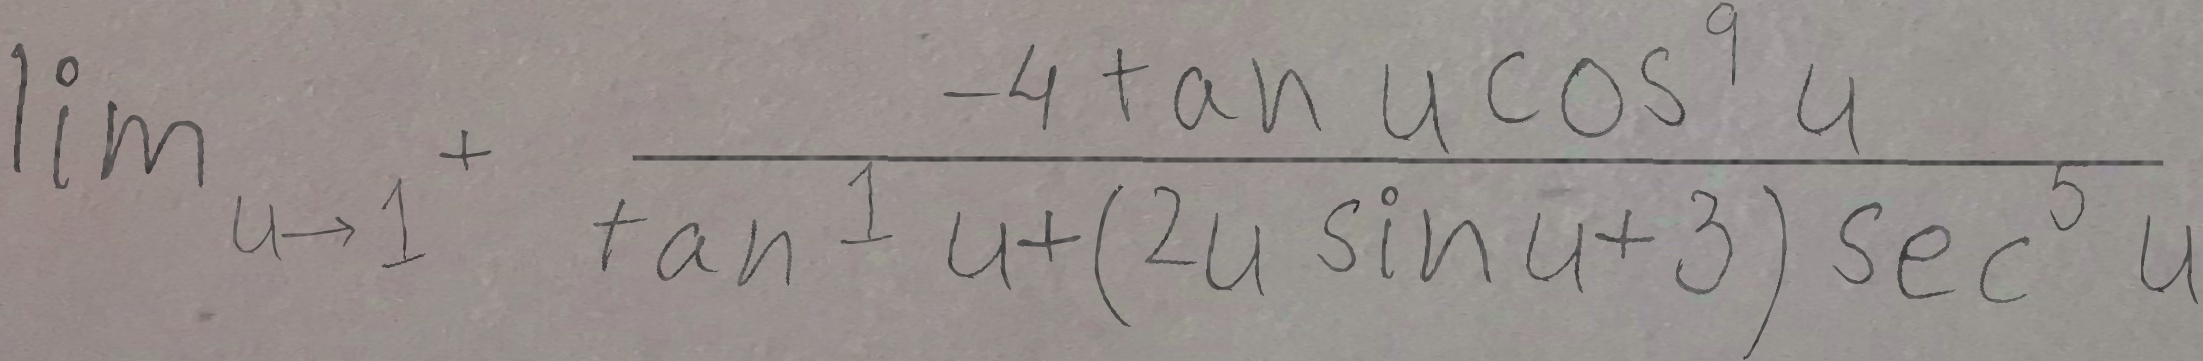 \lim_{u \to 1^+} \frac{-4 \tan u \cos^9 u}{\tan^1 u + (2u \sin u + 3) \sec^5 u}